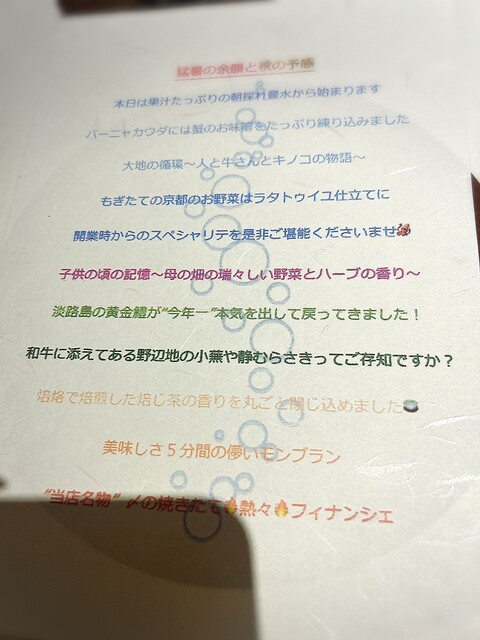 猛暑の余韻と秋の予感
本日は果汁たっぷりの朝採れ豊水から始まります
バーニャカウダには蟹のお味噌をたっぷり練り込みました
大地の循環～人と牛さんとキノコの物語～
もぎたての京都のお野菜はラタトゥイユ仕立てに
開業時からのスペシャリテを是非ご堪能くださいませ🦐
子供の頃の記憶～母の畑の瑞々しい野菜とハーブの香り～
淡路島の黄金鱧が“今年一”本気を出して戻ってきました！
和牛に添えてある野辺地の小蕪や静むらさきってご存知ですか？
焙烙で焙煎した焙じ茶の香りを丸ごと閉じ込めました🍵
美味しさ５分間の儚いモンブラン
“当店名物” 〆の焼きたて🔥熱々🔥フィナンシェ